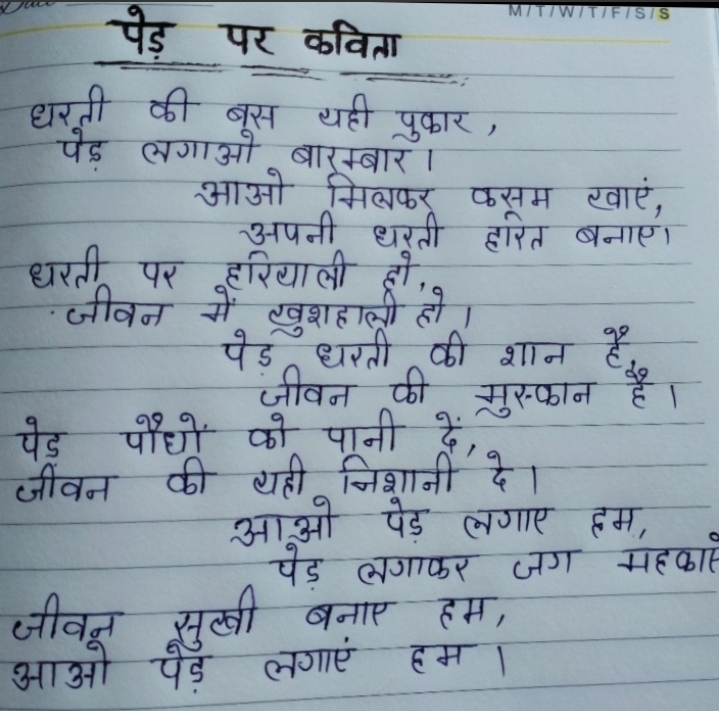 M/T/W/T/F/S/S
पेड़ पर कविता
धरती की बस यही पुकार,
पेड़ लगाओ बारम्बार।
आओ मिलकर कसम खाएं,
अपनी धरती हरित बनाए।
धरती पर हरियाली हो,
जीवन में खुशहाली हो।
पेड़ धरती की शान है,
जीवन की मुस्कान है।
पेड़ पौधों को पानी दें,
जीवन की यही निशानी दे।
आओ पेड़ लगाए हम,
पेड़ लगाकर जग महकाएं
जीवन सुखी बनाए हम,
आओ पेड़ लगाएं हम।